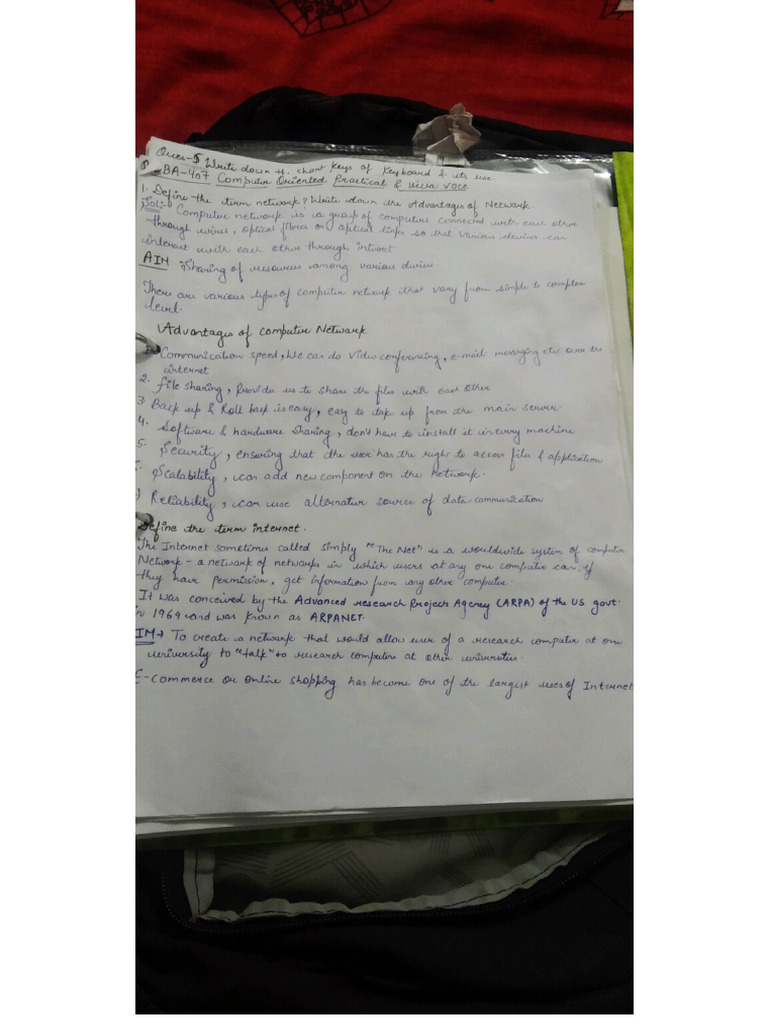 Ques-5 Write down th. short keys of keyboard & its use
BA-407 Computer Oriented Practical & viva voce
1. Define the term network? Write down the Advantages of Network
Sol:- Computer network is a group of computers connected with each other
through wires, optical fibres or optical links so that various devices can
interact with each other through internet
AIM Sharing of resources among various devices
There are various types of computer network that vary from simple to complex
level.
Advantages of computer Network
Communication speed, We can do video conferencing, e-mail messaging etc over the
internet
2. file sharing, Provide us to share the files with each other
3. Back up & Roll back is easy, easy to up from the main server
4. Software & hardware sharing, don't have to install it in every machine
5. Security, ensuring that the user has the right to access files & application
Scalability, can add new component on the network.
Reliability, can use alternative source of data communication
Define the term internet.
The Internet sometimes called simply "The Net" is a worldwide system of computer
Network - a network of networks in which users at any one computer can, if
they have permission, get information from any other computer
It was conceived by the Advanced research Projects Agency (ARPA) of the US govt.
in 1969 and was known as ARPANET.
IM→ To create a network that would allow user of a research computer at one
university to "talk" to research computer at other universities.
E-commerce or online shopping has become one of the largest uses of Internet